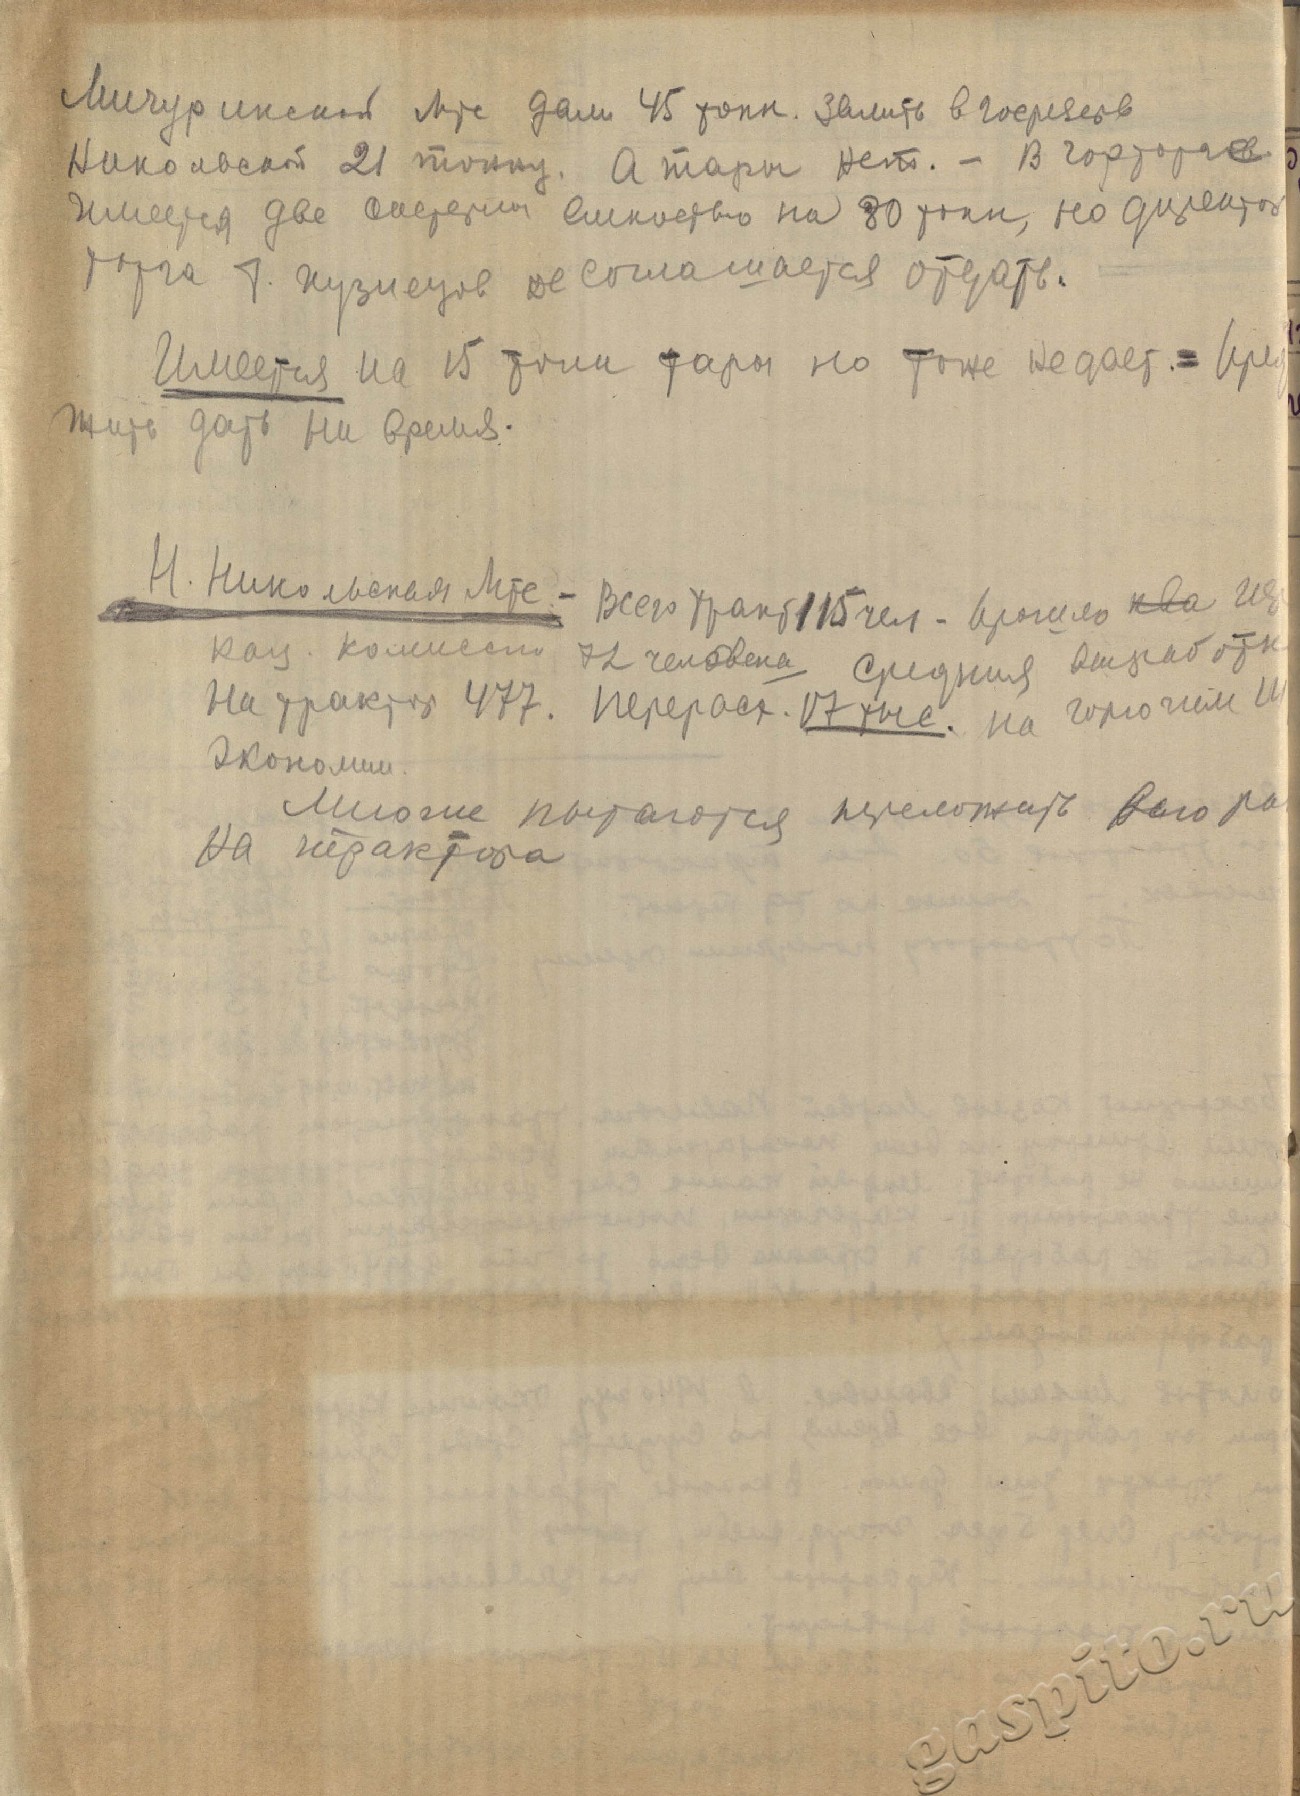 Мичуринской Мтс дали 45 тонн. Залить в госрезерв
Никольской 21 тонну. А тары нет. - В горторге
Имеется две систерны емкостью на 30 тонн, но директор
торга т. Кузнецов не соглашается отдать.
Имеется на 15 тонн тары но тоже не дает. = Пред
жить дать на время.
Н. Никольская Мтс - Всего тракт 115 чел - прошло ква
кац. комиссию 72 человека Средняя выработк
На трактор 477. Перерасх. 17 тыс. на горючем
экономии.
Многие пытаются переложить
на трактора
gaspito.ru